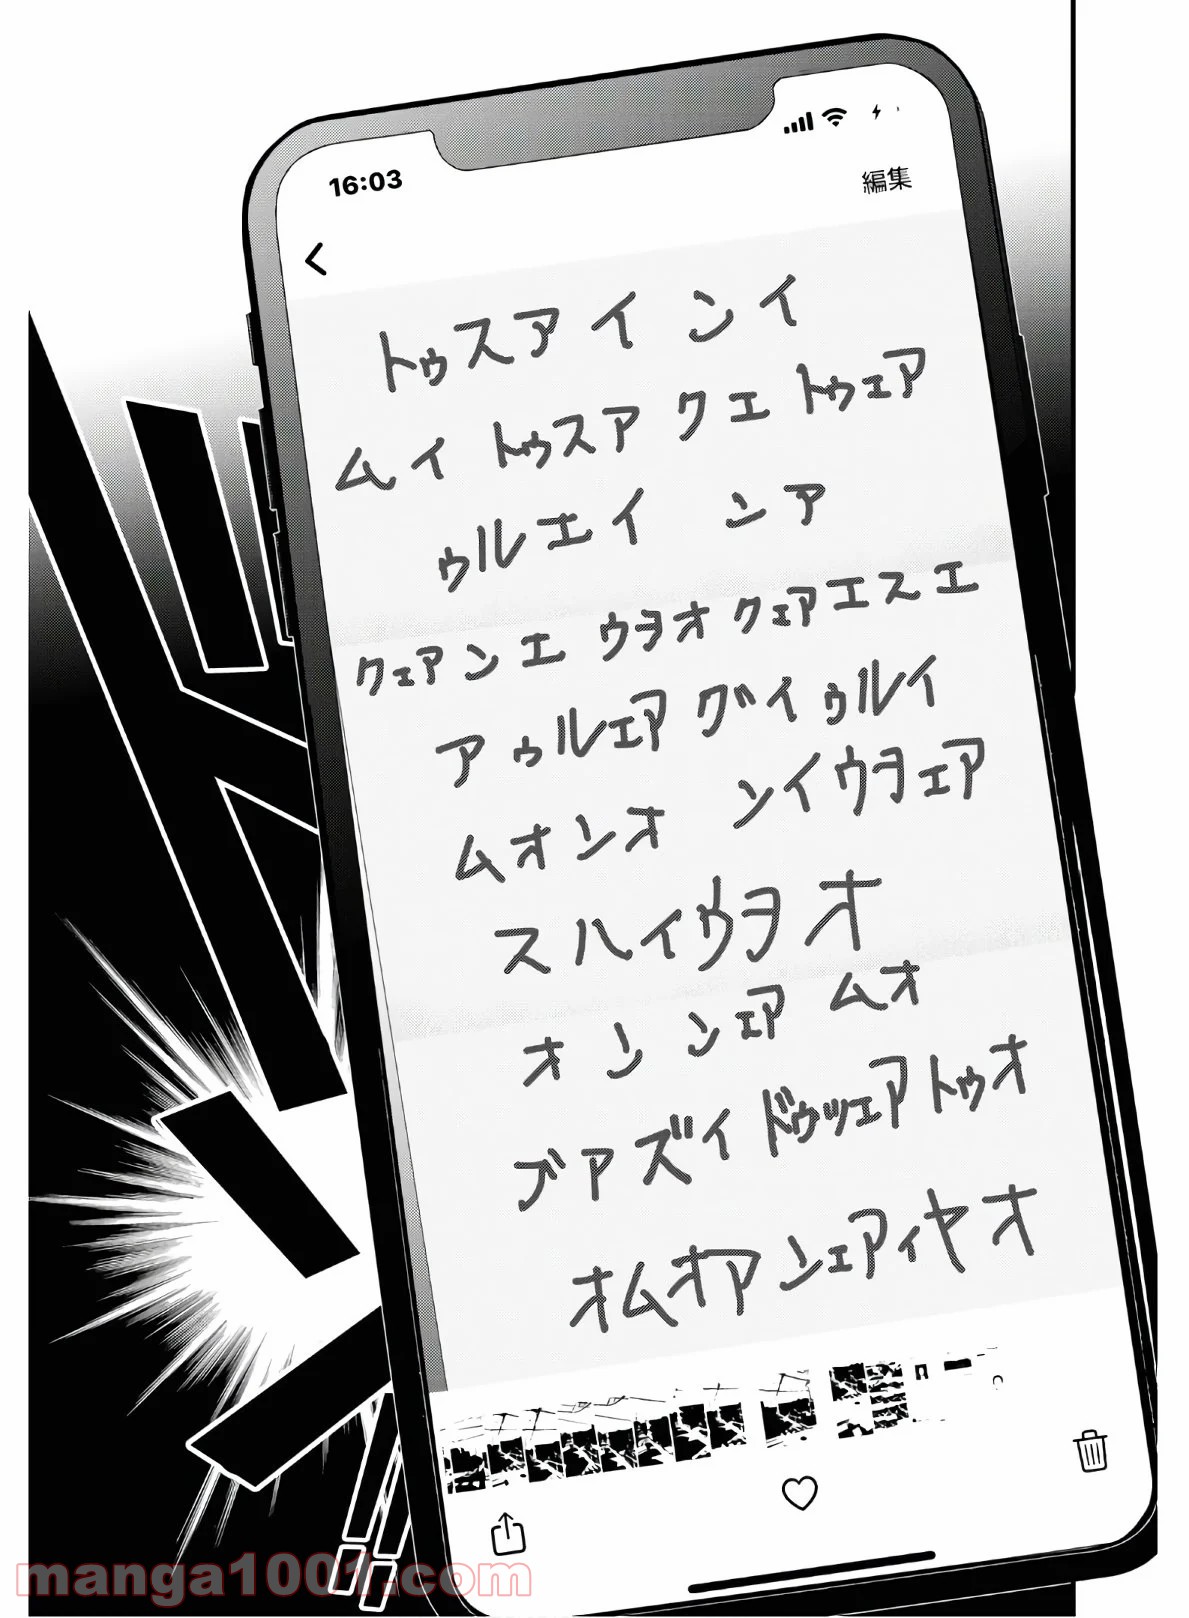 16:03
編集
トゥスアインイ
ムイ トゥスア クエ トゥェア
ゥルエイ ンア
クェアンエ ウヲオ クェアエスエ
アゥルェア グイゥルイ
ムオンオ ンイウヲェア
スハイウヲオ
オン ンェア ムオ
ブアズイ ドゥッェア トゥオ
オムオア ンェアィヤオ
manga1001.com